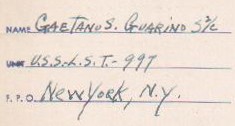 NAME GAETANO S. GUARINO S 3/C
UNIT U.S.S.-L.S.T.-997
F.P.O. New York, N.Y.